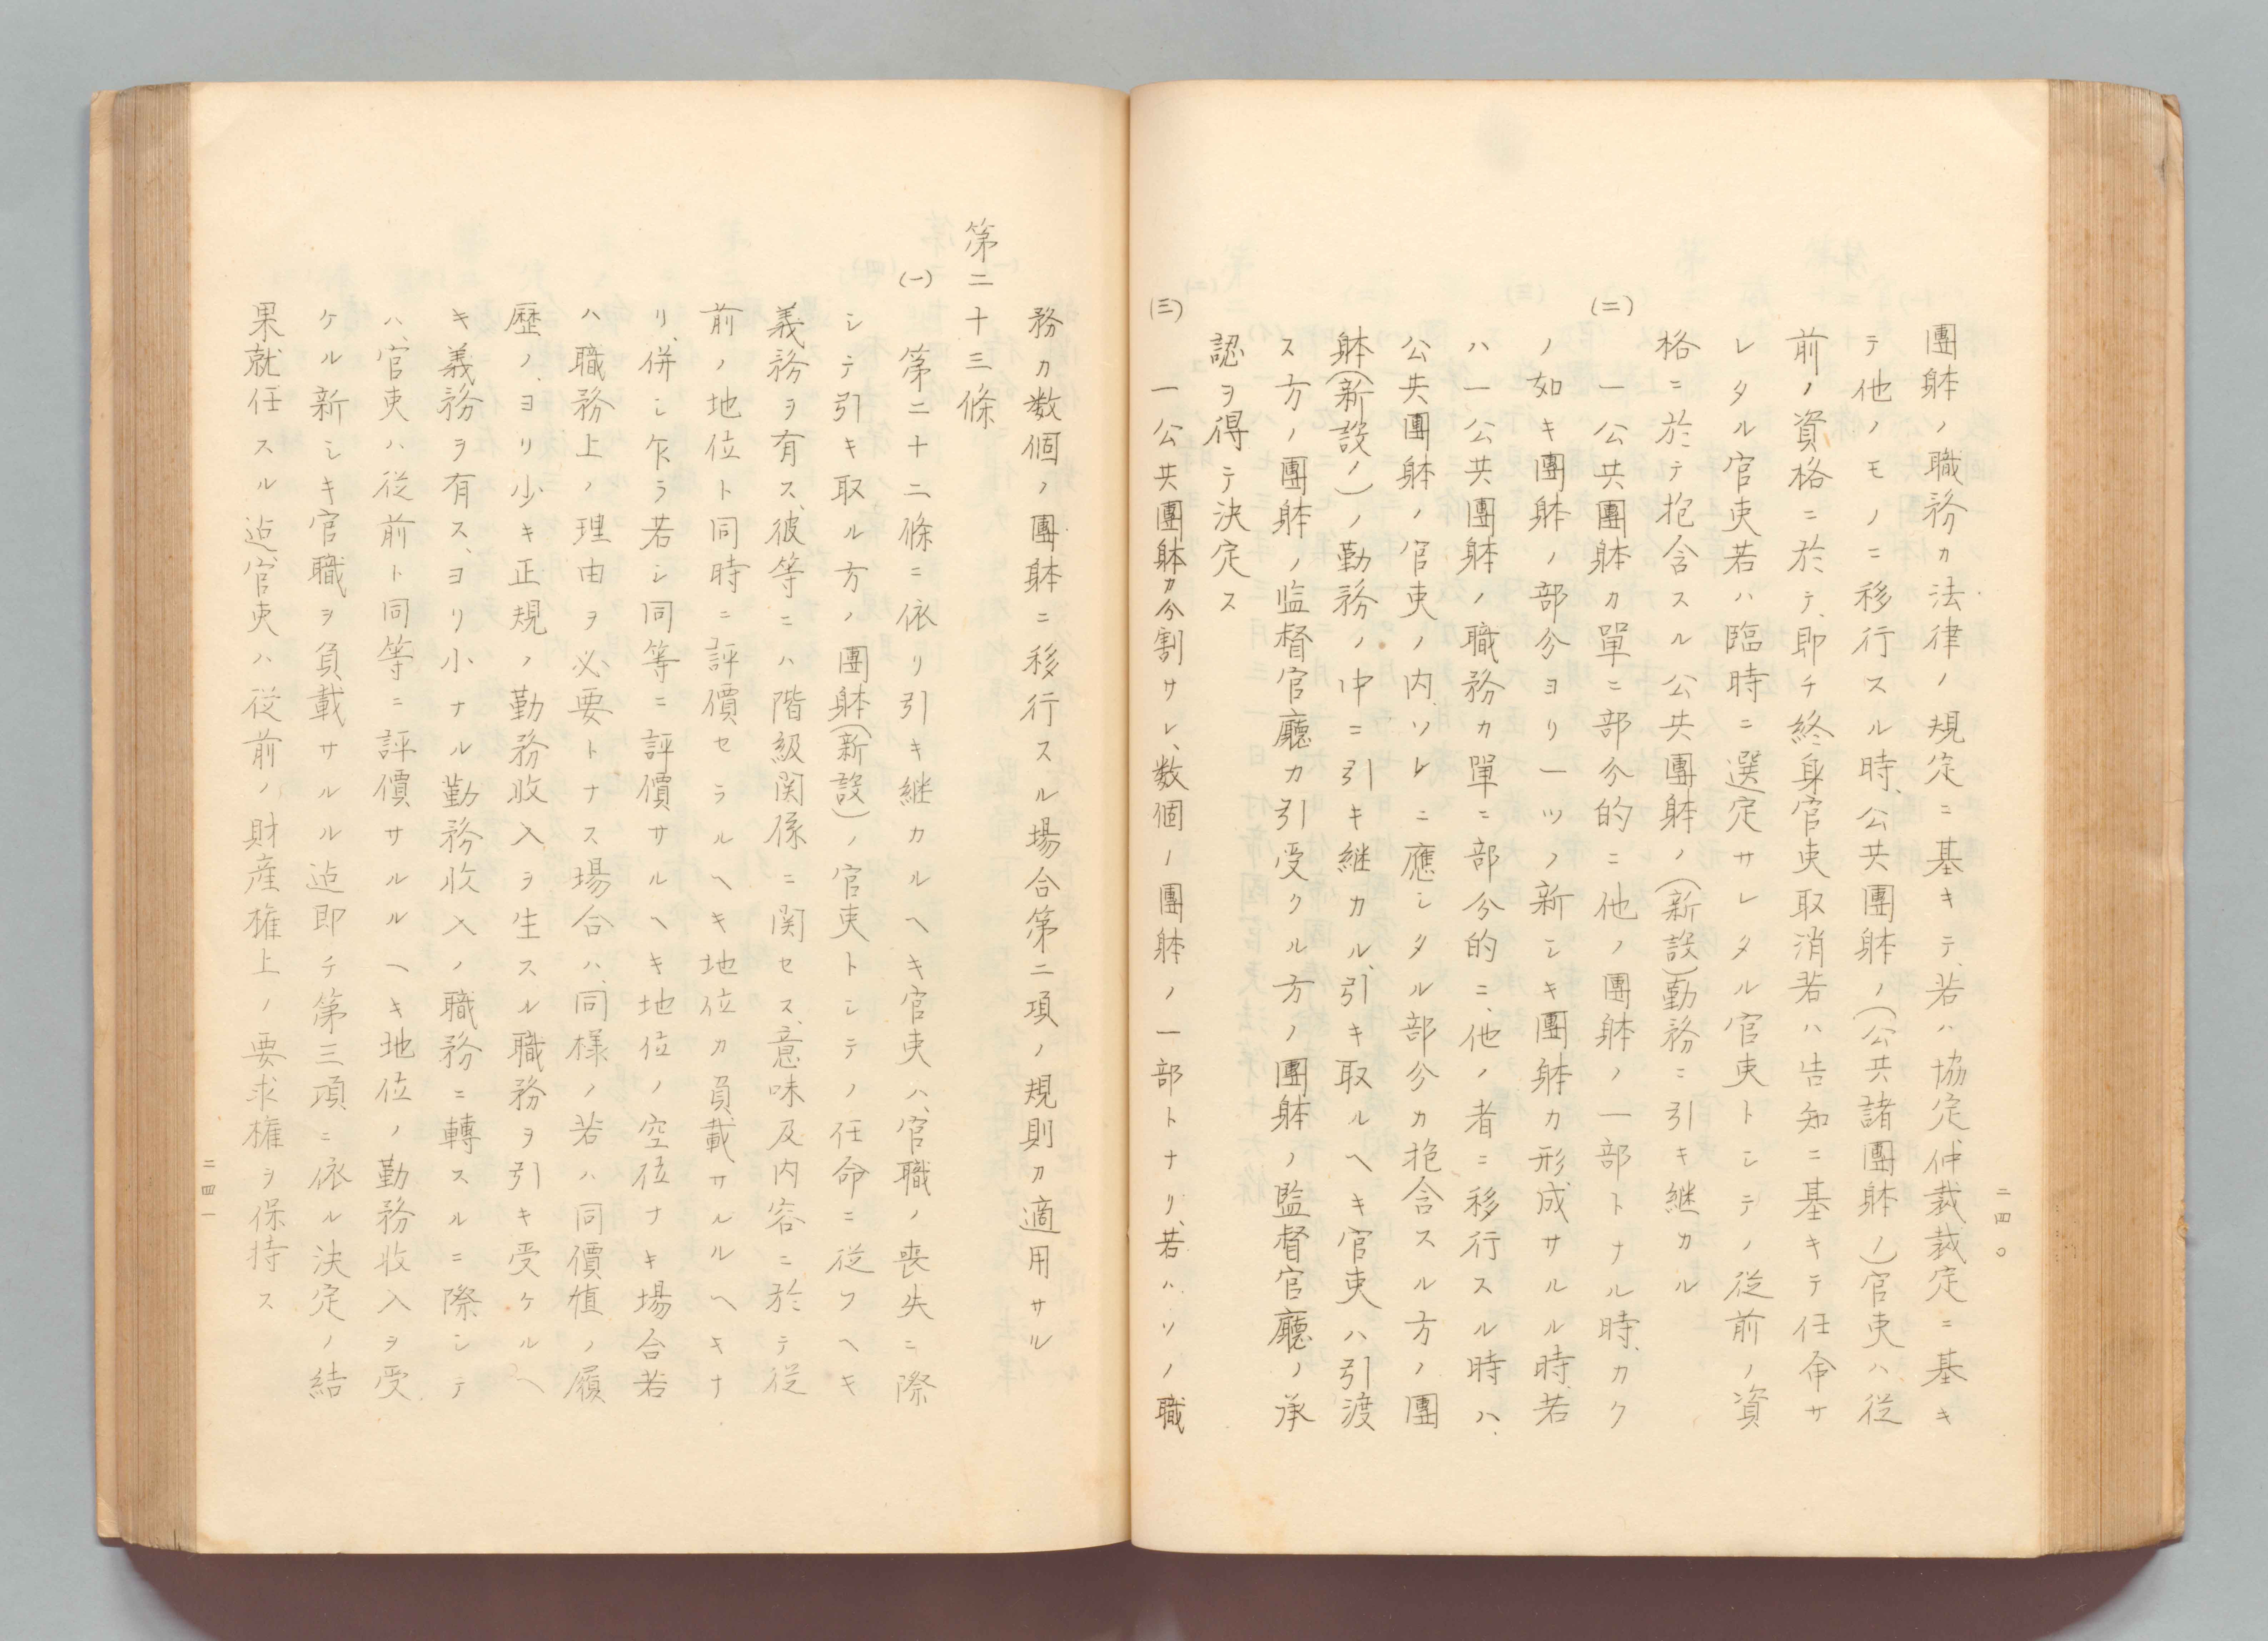 二四〇
團躰ノ職務カ法律ノ規定ニ基キテ、若ハ協定、仲裁裁定ニ基キ
テ他ノモノニ移行スル時、公共團躰ノ(公共諸團躰ノ)官吏ハ従
前ノ資格ニ於テ、即チ終身官吏取消若ハ告知ニ基キテ任命サ
レタル官吏若ハ臨時ニ選定サレタル官吏トシテノ従前ノ資
格ニ於テ抱含スル公共團躰ノ(新設)勤務ニ引キ継カル
(二)一公共團躰カ單ニ部分的ニ他ノ團躰ノ一部トナル時、カク
ノ如キ團躰ノ部分ヨリ一ツノ新シキ團躰カ形成サルル時若
ハ一公共團躰ノ職務カ單ニ部分的ニ、他ノ者ニ移行スル時ハ、
公共團躰ノ官吏ノ内、ソレニ應シタル部分カ抱含スル方ノ團
躰(新設ノ)ノ勤務ノ中ニ引キ継カル、引キ取ルヘキ官吏ハ引渡
ス方ノ團躰ノ监督官廳カ引受クル方ノ團躰ノ監督官廳ノ承
認ヲ得テ決定ス
(三)一公共團躰カ分割サレ、数個ノ團躰ノ一部トナリ、若ハソノ職
務カ数個ノ團躰ニ移行スル場合第二項ノ規則カ適用サル
第二十三條
(一)第二十二條ニ依リ引キ継カルヘキ官吏ハ、官職ノ喪失ニ際
シテ引キ取ル方ノ團躰(新設)ノ官吏トシテノ任命ニ従フヘキ
義務ヲ有ス、彼等ニハ階級関係ニ関セス、意味及内容ニ於テ従
前ノ地位ト同時ニ評價セラルヘキ地位カ負載サルルヘキナ
リ、併シ乍ラ若シ同等ニ評價サルヘキ地位ノ空位ナキ場合若
ハ職務上ノ理由ヲ必要トナス場合ハ、同様ノ若ハ同價値ノ履
歴ノ、ヨリ少キ正規ノ勤務收入ヲ生スル職務ヲ引キ受ケルヘ
キ義務ヲ有ス、ヨリ小ナル勤務收入ノ職務ニ轉スルニ際シテ
ハ、官吏ハ従前ト同等ニ評價サルルヘキ地位ノ勤務收入ヲ受
ケル新シキ官職ヲ負載サルル迠即チ第三項ニ依ル決定ノ結
果就任スル迠、官吏ハ従前ノ財産権上ノ要求権ヲ保持ス
二四一